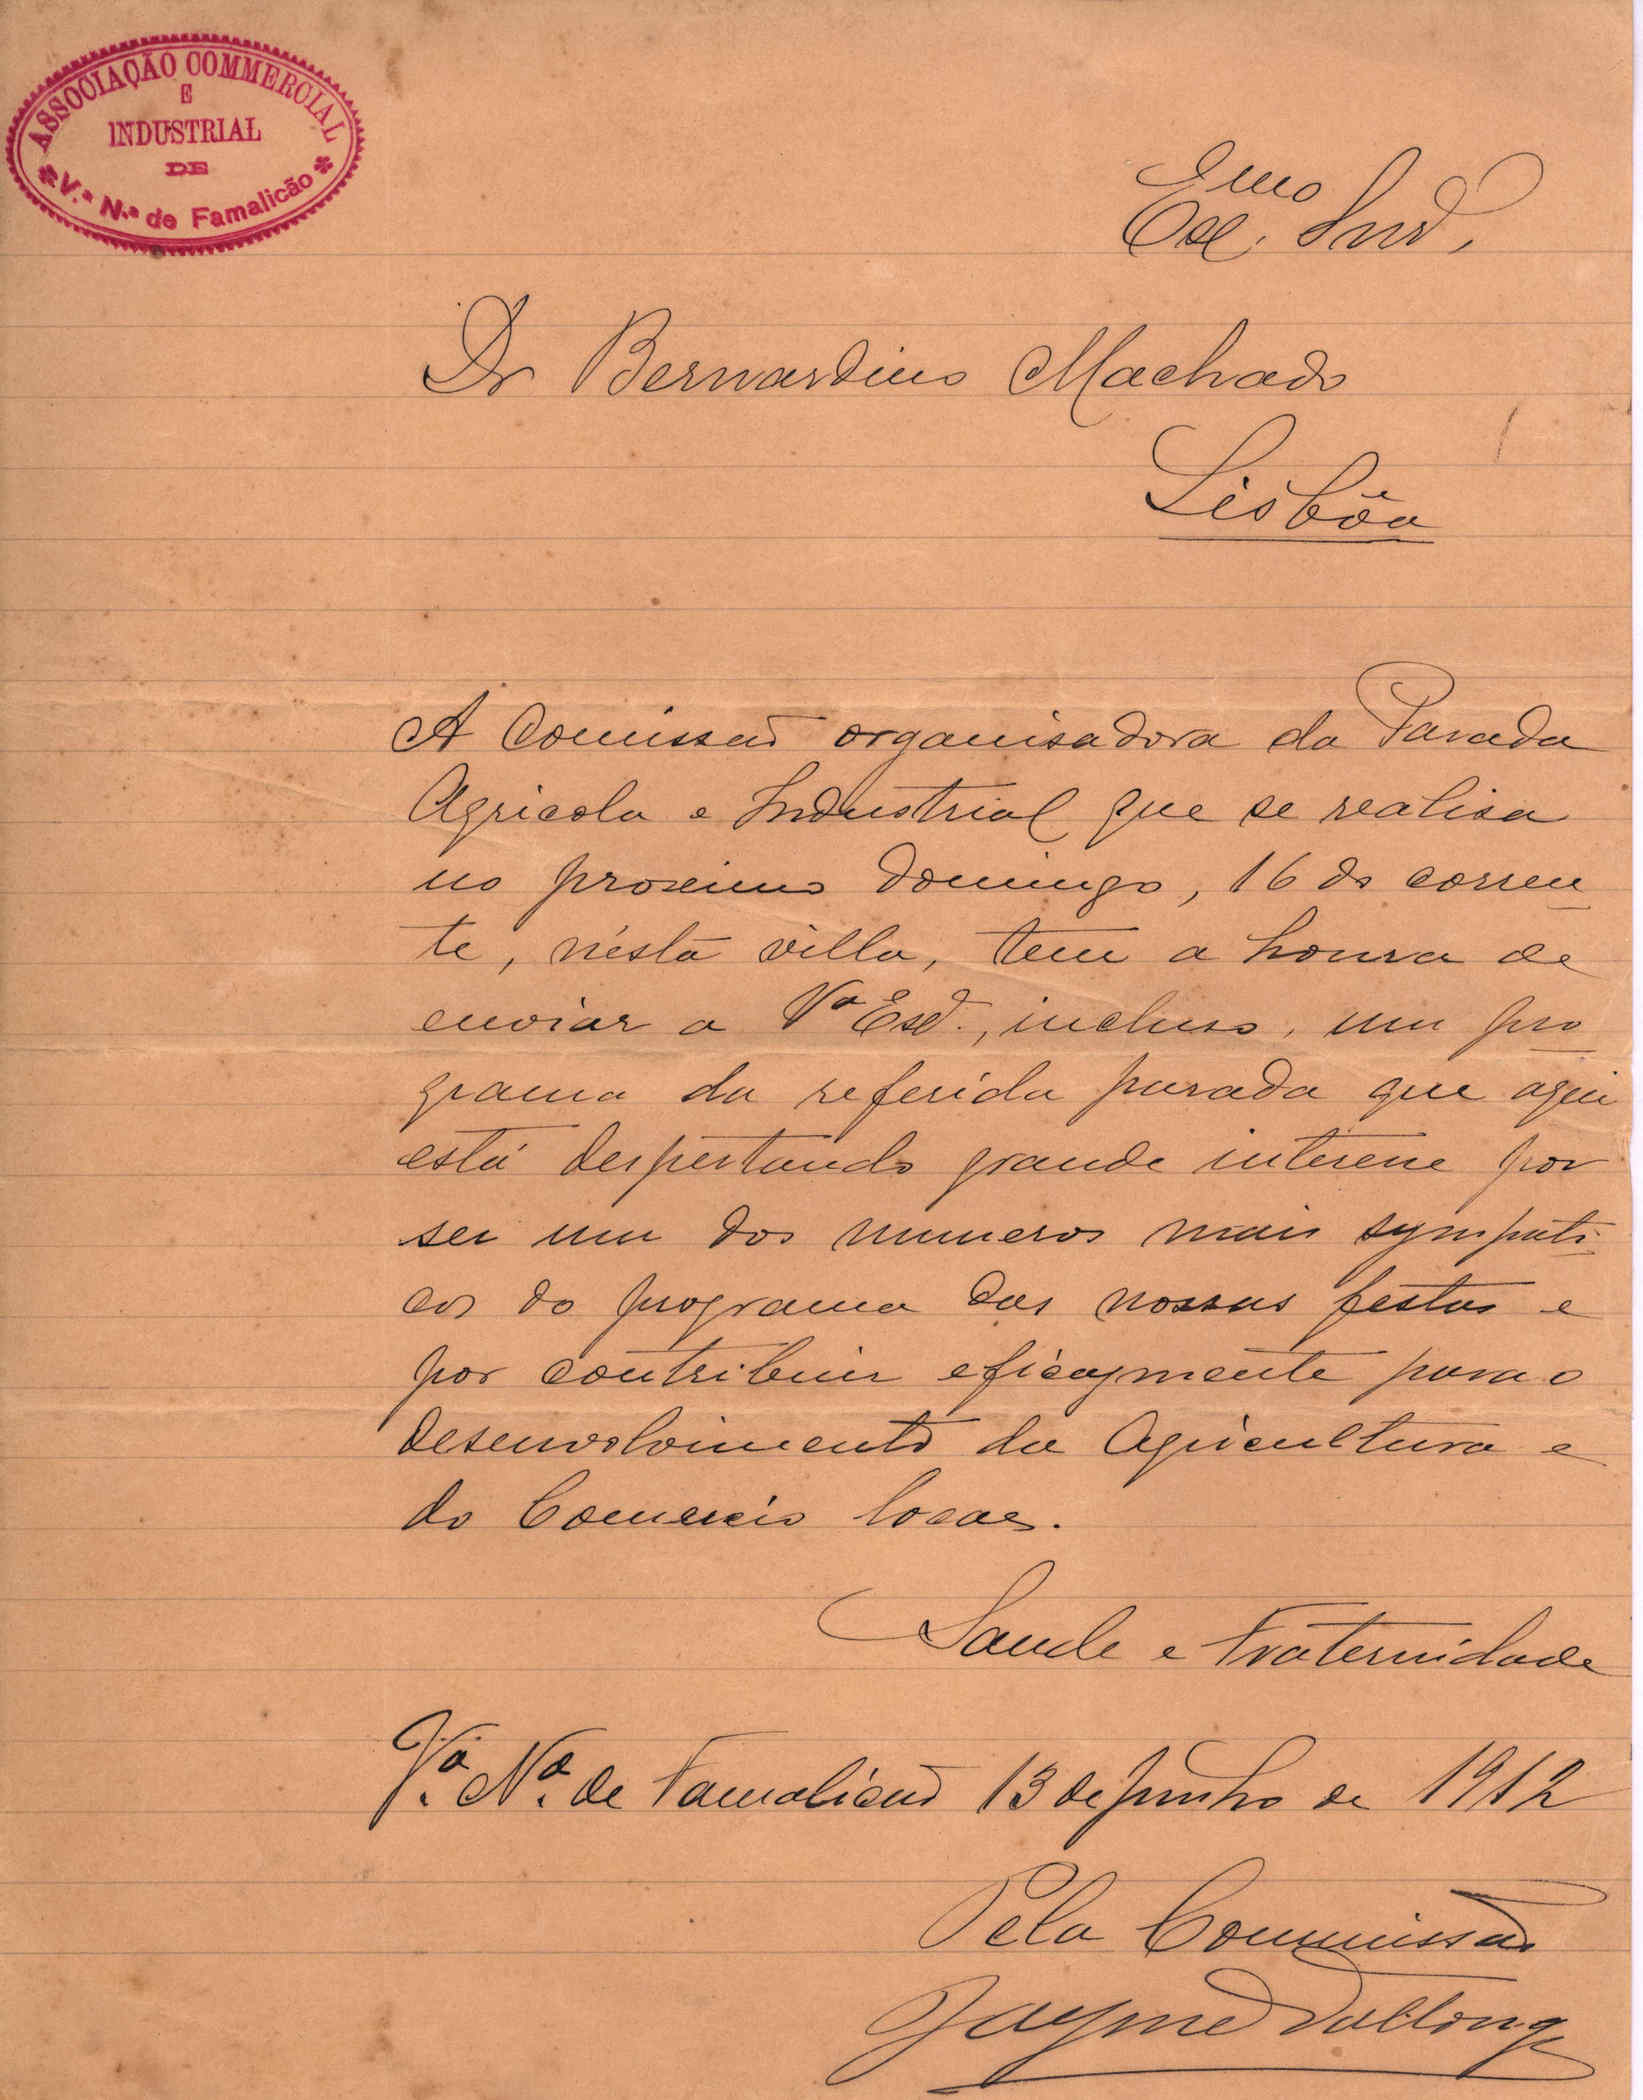 ASSOCIAÇÃO COMMERCIAL
E
INDUSTRIAL
DE
V.ª N.ª de Famalicão
Exmo Snr.
Dr Bernardino Machado
Lisbôa
A Comissão organisadora da Parada
Agricola e Industrial que se realisa
no proximo domingo, 16 do corren-
te, nésta villa, tem a honra de
enviar a Vª Exª., incluso, um pro-
grama da referida parada que aqui
está despertando grande interesse por
ser um dos numeros mais sympati-
cos do programa das nossas festas e
por contribuir eficazmente para o
desenvolvimento da Agricultura e
do Comercio locaes.
Saude e Fraternidade
Vª. Nª. de Famalicão 13 de Junho de 1912
Pela Commissão
Jayme